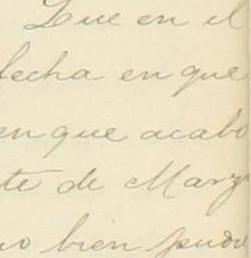 Que en el
fecha en que
en que acabo
te de Marz
no bien pudo